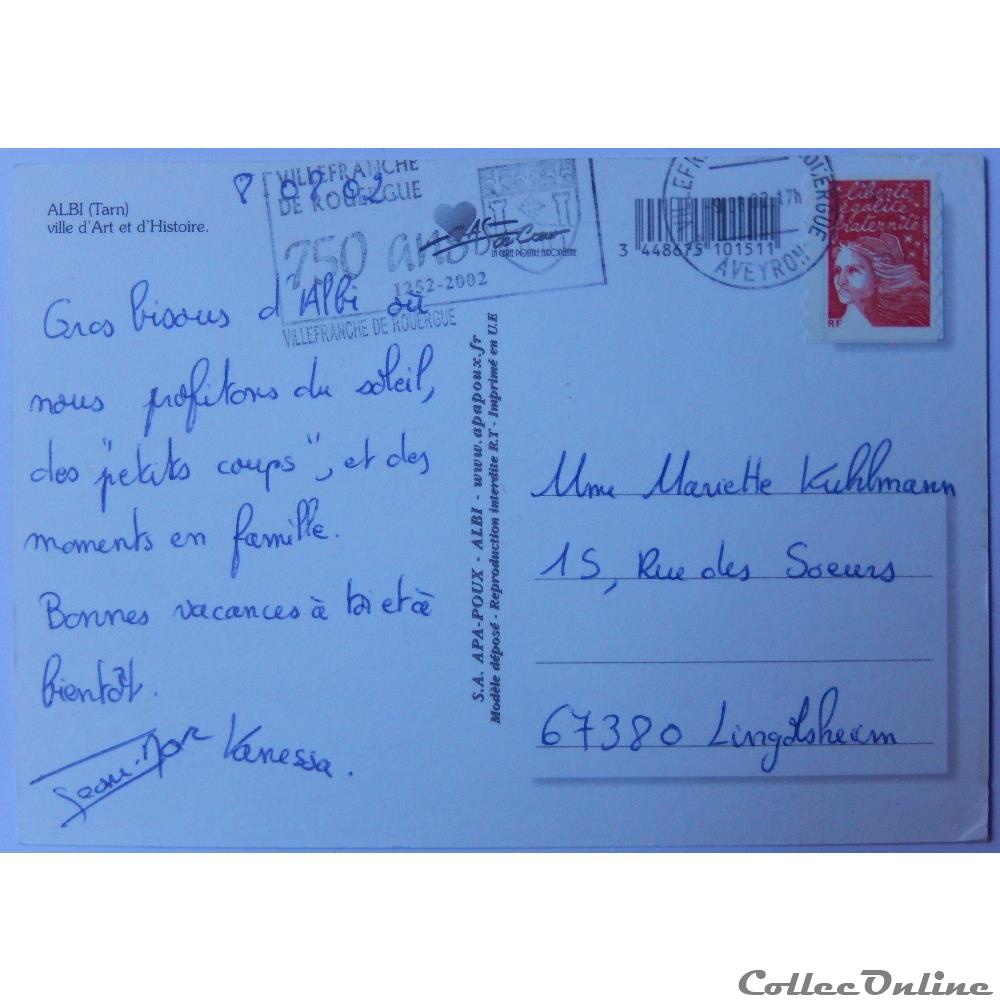 ALBI (Tarn)
ville d'Art et d'Histoire.
8.08.02
VILLEFRANCHE
DE ROUERGUE
750 ans
1252-2002
VILLEFRANCHE DE ROUERGUE
de Coeur
LA CARTE POSTALE EUROPÉENNE
3 448675 101511
AVEYRON
Liberté
égalité
fraternité
RF
Gros bisous d'Albi où
nous profitons du soleil,
des "petits coups", et des
moments en famille.
Bonnes vacances à toi et à
bientôt.
Jean-Marc Vanessa.
S.A. APA-POUX - ALBI - www.apapoux.fr
Modèle déposé - Reproduction interdite R.T - Imprimé en U.E
Mme Mariette Kuhlmann
15, Rue des Soeurs
67380 Lingolsheim
CollecOnline